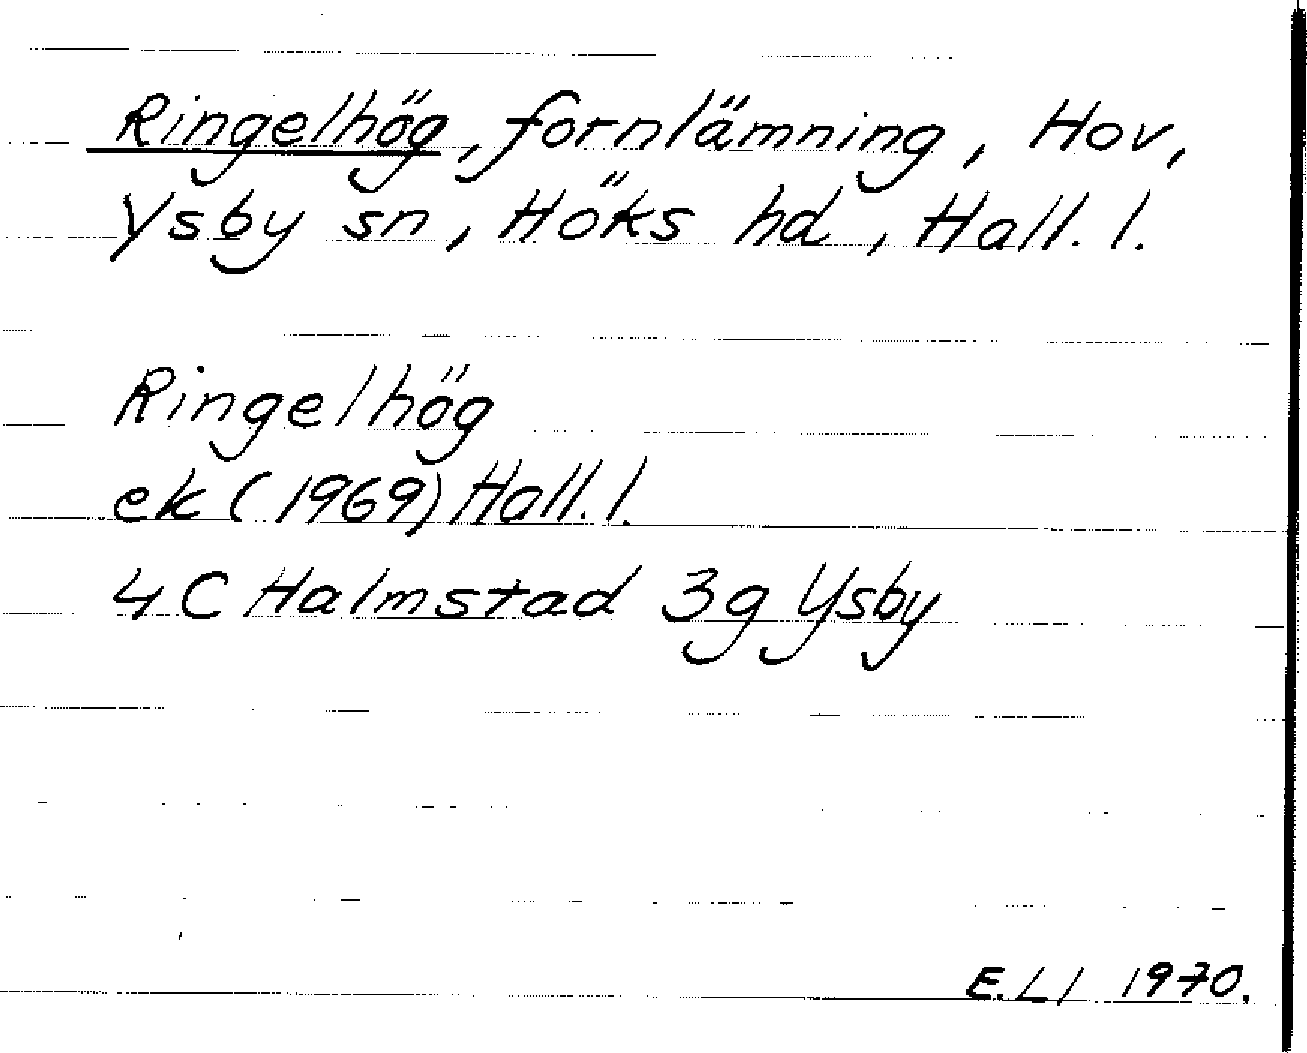 Ringelhög, fornlämning, Hov,
Ysby sn, Höks hd, Hall. l.
Ringelhög
ek (1969) Hall. l.
4 C Halmstad 3g Ysby
E. Ll 1970.